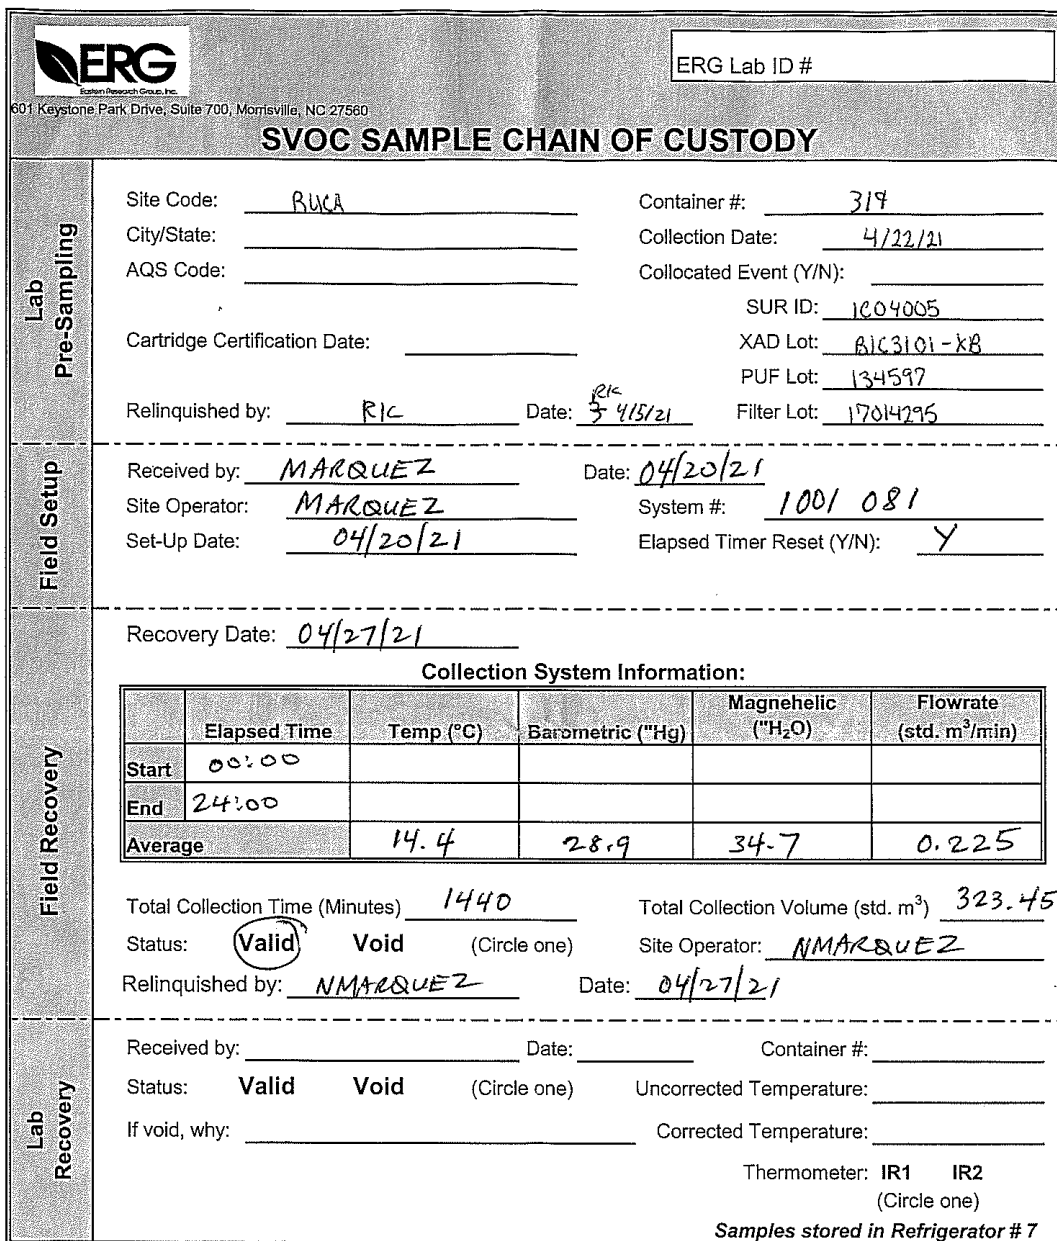 ERG
Eastern Research Group, Inc.
ERG Lab ID #
601 Keystone Park Drive, Suite 700, Morrisville, NC 27560
SVOC SAMPLE CHAIN OF CUSTODY
Lab Pre-Sampling
Site Code: RUCA Container #: 319
City/State: Collection Date: 4/22/21
AQS Code: Collocated Event (Y/N):
SUR ID: 1C04005
Cartridge Certification Date: XAD Lot: B1C3101-KB
PUF Lot: 134597
RIC
Relinquished by: RIC Date: 4/5/21 Filter Lot: 17014295
Field Setup
Received by: MARQUEZ Date: 04/20/21
Site Operator: MARQUEZ System #: 1001 081
Set-Up Date: 04/20/21 Elapsed Timer Reset (Y/N): Y
Field Recovery
Recovery Date: 04/27/21
Collection System Information:
Elapsed Time Temp (°C) Barometric ("Hg) Magnehelic ("H₂O) Flowrate (std. m³/min)
Start 00:00
End 24:00
Average 14.4 28.9 34.7 0.225
Total Collection Time (Minutes) 1440 Total Collection Volume (std. m³) 323.45
Status: Valid Void (Circle one) Site Operator: NMARQUEZ
Relinquished by: NMARQUEZ Date: 04/27/21
Lab Recovery
Received by: Date: Container #:
Status: Valid Void (Circle one) Uncorrected Temperature:
If void, why: Corrected Temperature:
Thermometer: IR1 IR2
(Circle one)
Samples stored in Refrigerator # 7